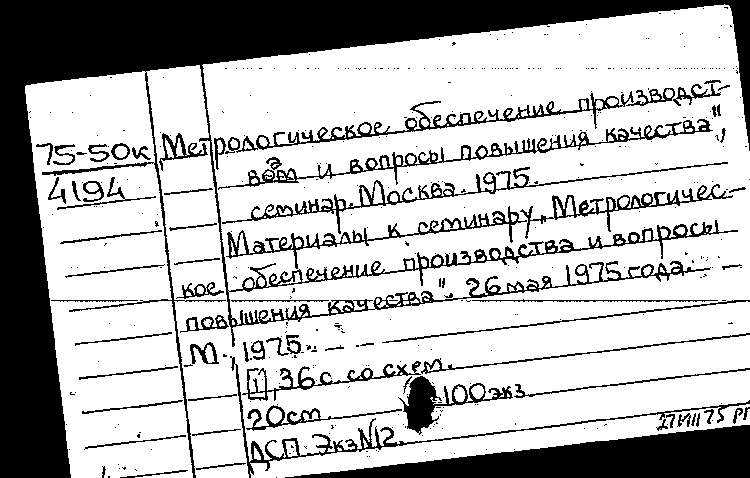 75-50к
4194
Метрологическое обеспечение производст-
ва и вопросы повышения качества",
семинар. Москва. 1975.
Материалы к семинару „Метрологичес-
кое обеспечение производства и вопросы
повышения качества". 26 мая 1975 года.
М., 1975.
[1], 36 с. со схем.
20 см. 100 экз.
ДСП. Экз N12.
27 VIII 75 РГ